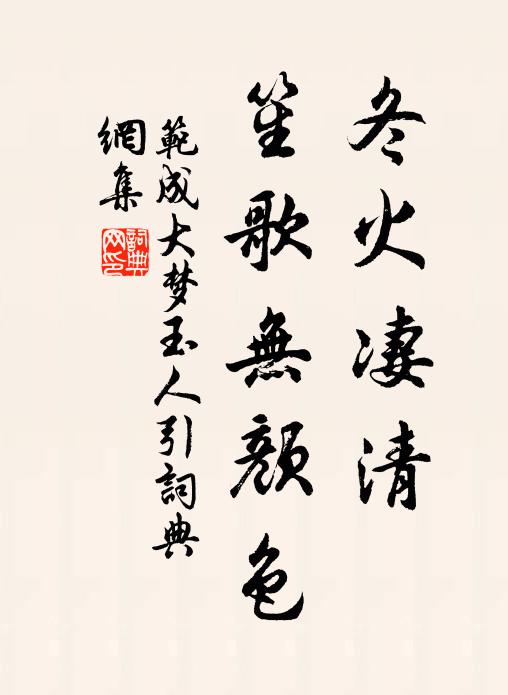 冬火淒清
笙歌無顏色
範成大梦玉人引詞典
網集
詞典
网印